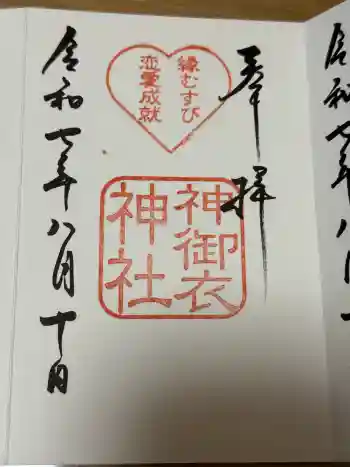 奉拝
縁むすび
恋愛成就
神御衣
神社
令和七年八月十日
令和七年八月